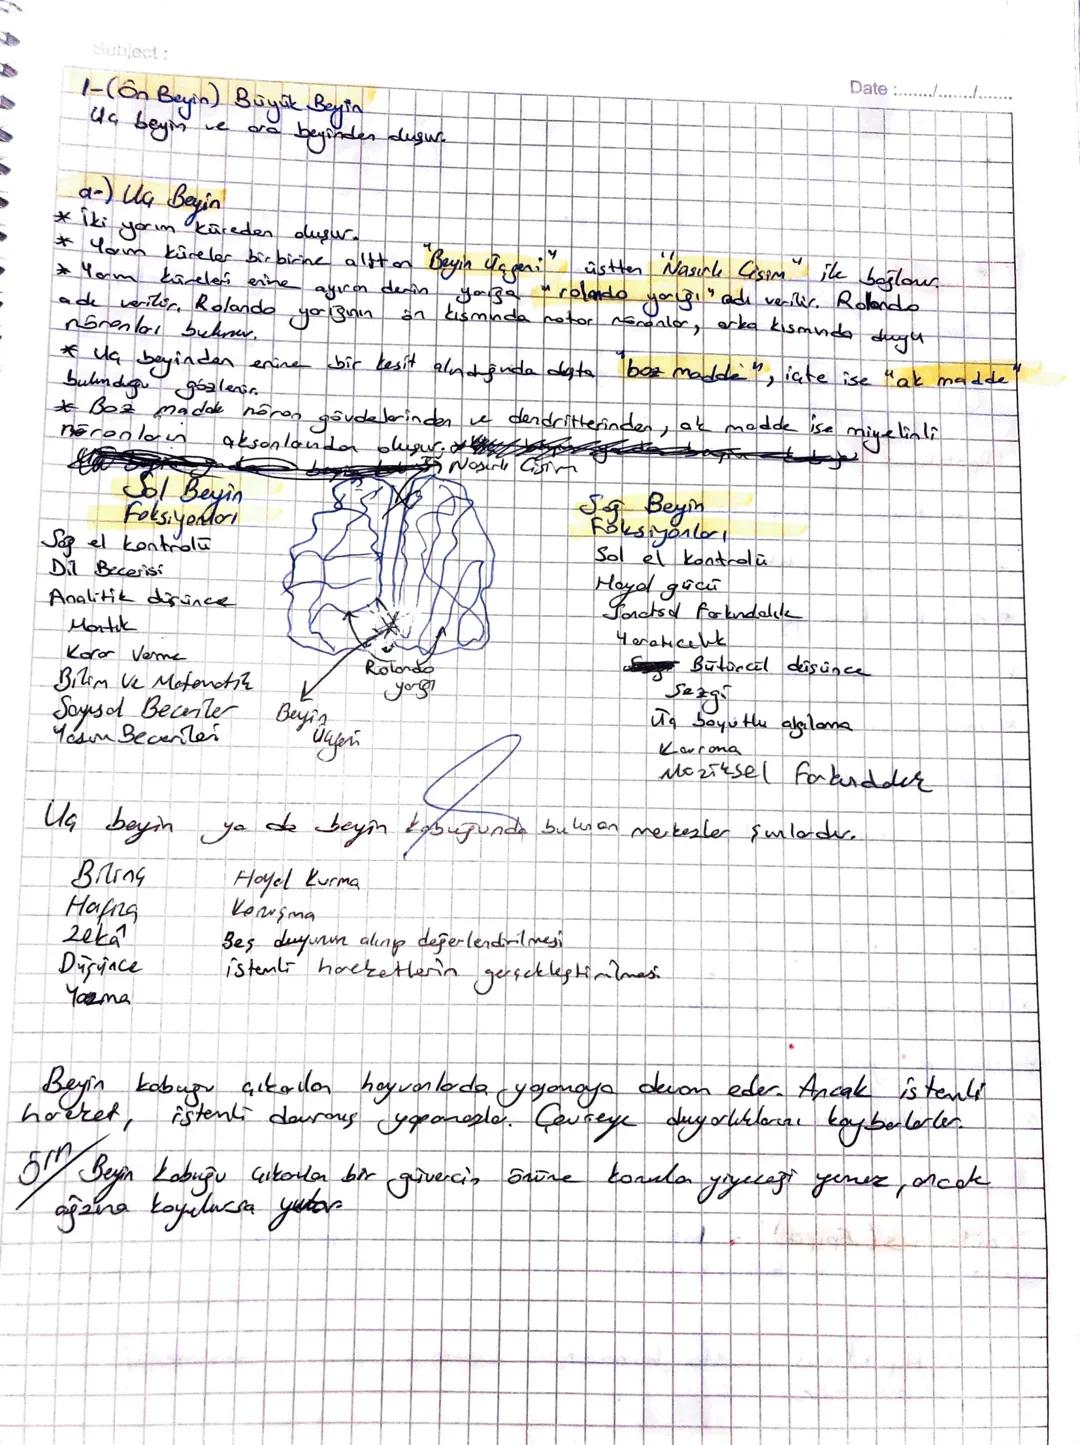 Subject :
Date :......./......./.......
1-(Ön Beyin) Büyük Beyin
Uç beyin ve ara beyinden oluşur.
a-) Uç Beyin
* İki yarım küreden oluşur.
* Yarım küreler birbirine alttan "Beyin Üçgeni" üstten "Nasırlı Cisim" ile bağlanır.
* Yarım küreleri enine ayıran derin yarığa "rolando yarığı" adı verilir. Rolando
adı verilir. Rolando yarığının ön kısmında motor nöronlar, arka kısmında duyu
nöronları bulunur.
* Uç beyinden enine bir kesit alındığında dışta "boz madde", içte ise "ak madde"
bulunduğu gözlenir.
* Boz madde nöron gövdelerinden ve dendritlerinden, ak madde ise miyelinli
nöronların aksonlarından oluşur.
Nasırlı Cisim
Sol Beyin
Foksiyonları
Sağ el kontrolü
Dil Becerisi
Analitik düşünce
Mantık
Karar Verme
Bilim Ve Matematik
Sayısal Beceriler
Yazım Becerileri
Rolando
yarığı
Beyin
Üçgeni
Sağ Beyin
Foksiyonları
Sol el kontrolü
Hayal gücü
Sanatsal Farkındalık
Yaratıcılık
Bütüncül düşünce
Sezgi
Üç boyutlu algılama
Kavrama
Müziksel Farkındalık
Uç beyin ya da beyin kabuğunda bulunan merkezler şunlardır.
Bilinç Hayal Kurma
Hafıza Konuşma
Zekâ Beş duyunun alınıp değerlendirilmesi
Düşünce istemli hareketlerin gerçekleştirilmesi.
Yazma
Beyin kabuğu çıkarılan hayvanlarda yaşamaya devam eder. Ancak istemli
hareket, istemli davranış yapamazlar. Çevreye duyarlılıklarını kaybederler.
Örn/ Beyin kabuğu çıkarılan bir güvercin önüne konulan yiyeceği yemez, ancak
ağzına koyulursa yutar.